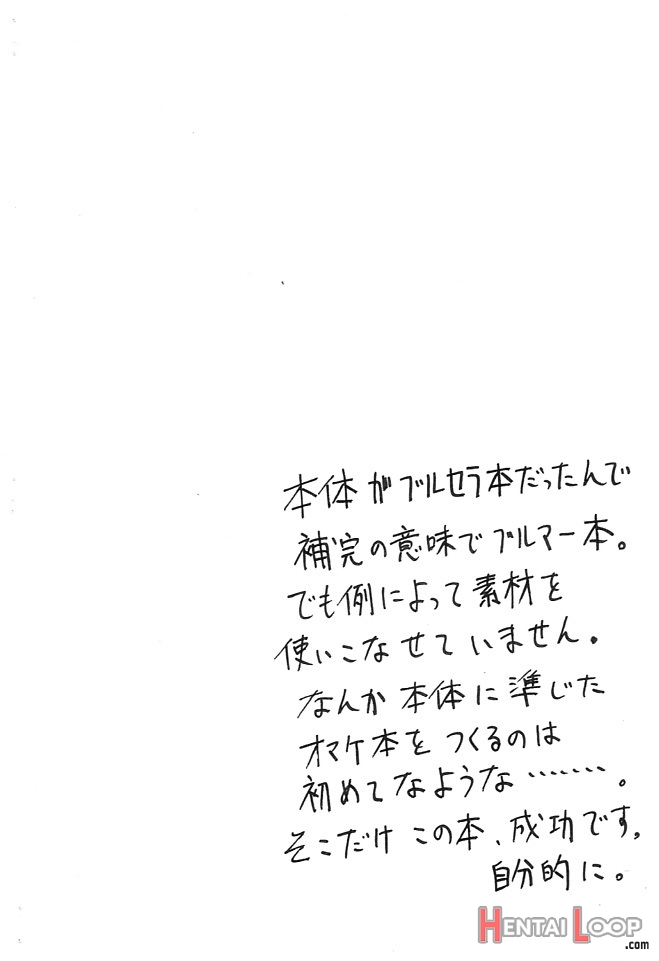 本体がブルセラ本だったんで
補完の意味でブルマー本。
でも例によって素材を
使いこなせていません。
なんか本体に準じた
オマケ本をつくるのは
初めてなような………。
そこだけこの本、成功です。
自分的に。
HENTAI LOOP
.com